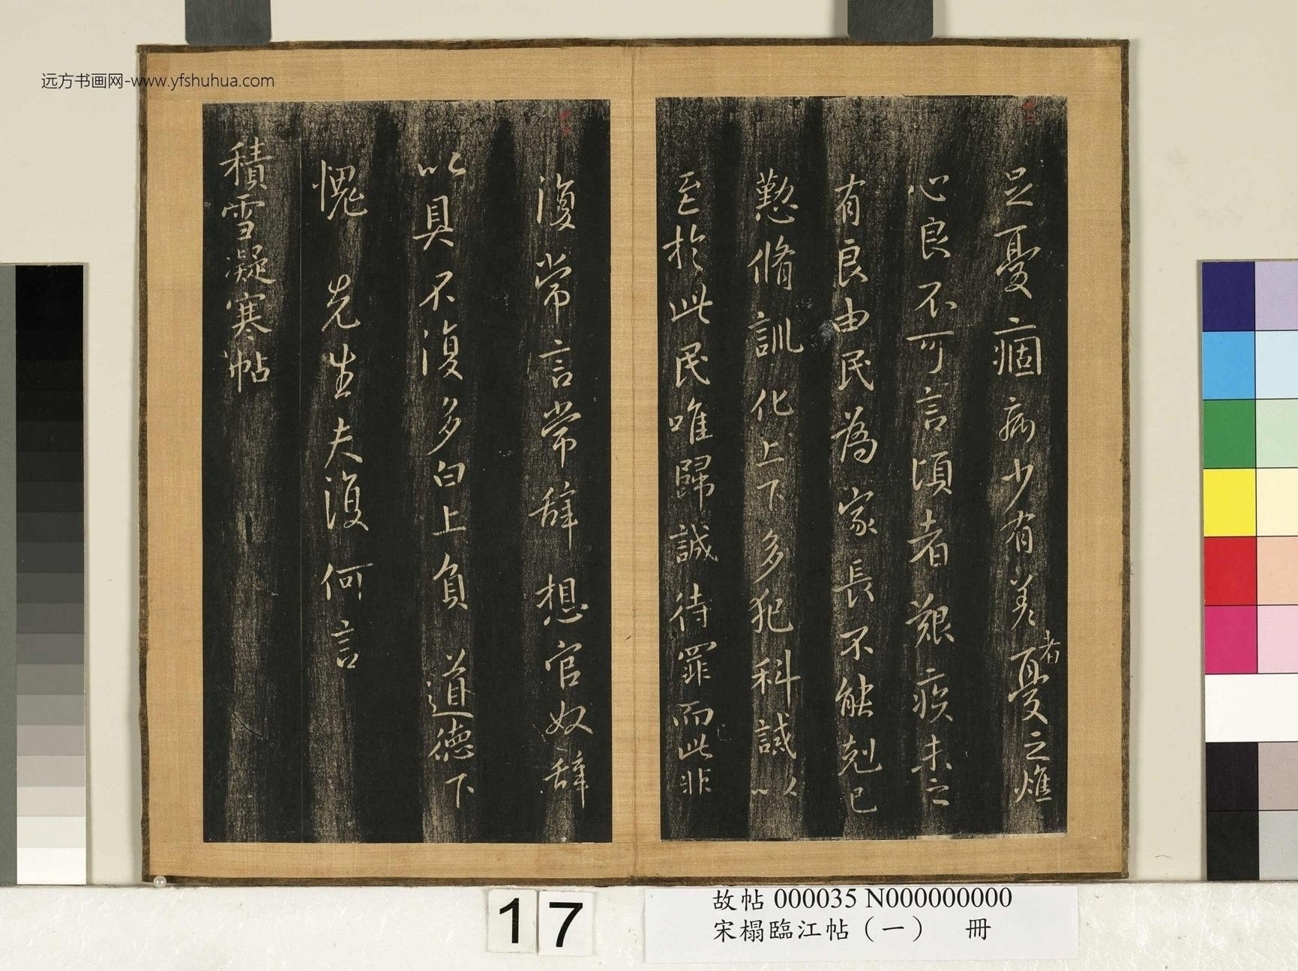 远方书画网-www.yfshuhua.com
足憂痼病少有差者憂之燋
心良不可言頃者艱疾未之
有良由民為家長不能剋己
懃脩訓化上下多犯科誡以
至於此民唯歸誠待罪而此非
復常言常辞想官奴辞
以具不復多白上負道德下
愧先生夫復何言
積雪凝寒帖
17
故帖 000035 N000000000
宋榻臨江帖（一）　冊